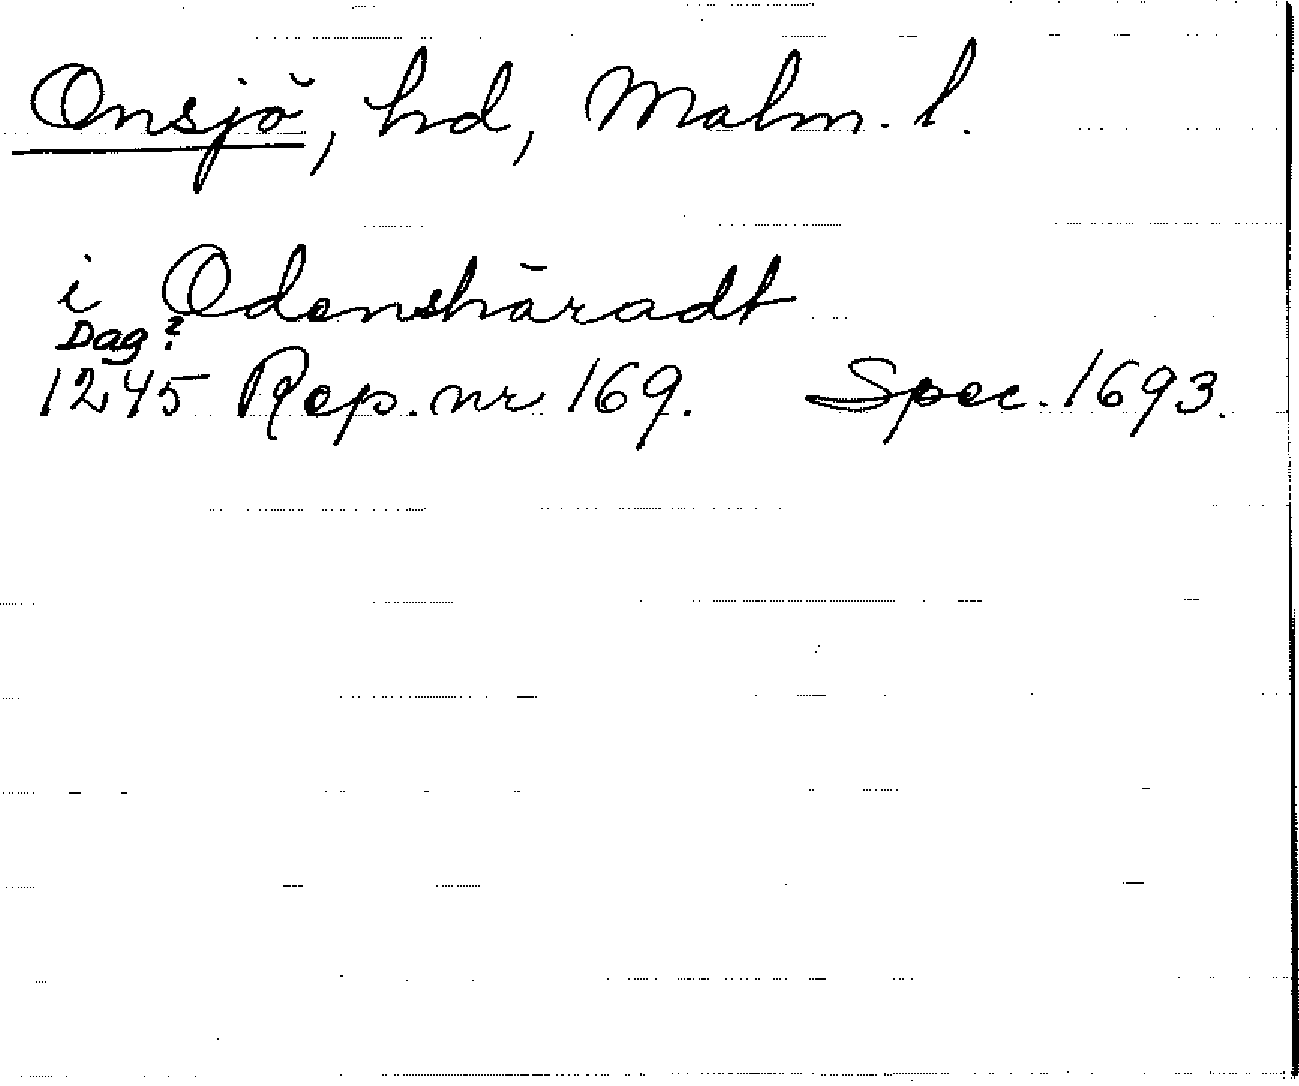 Onsjö, hd, Malm. l.
i Odenshäradt
Dag?
1245 Rep. nr 169. Spec. 1693.